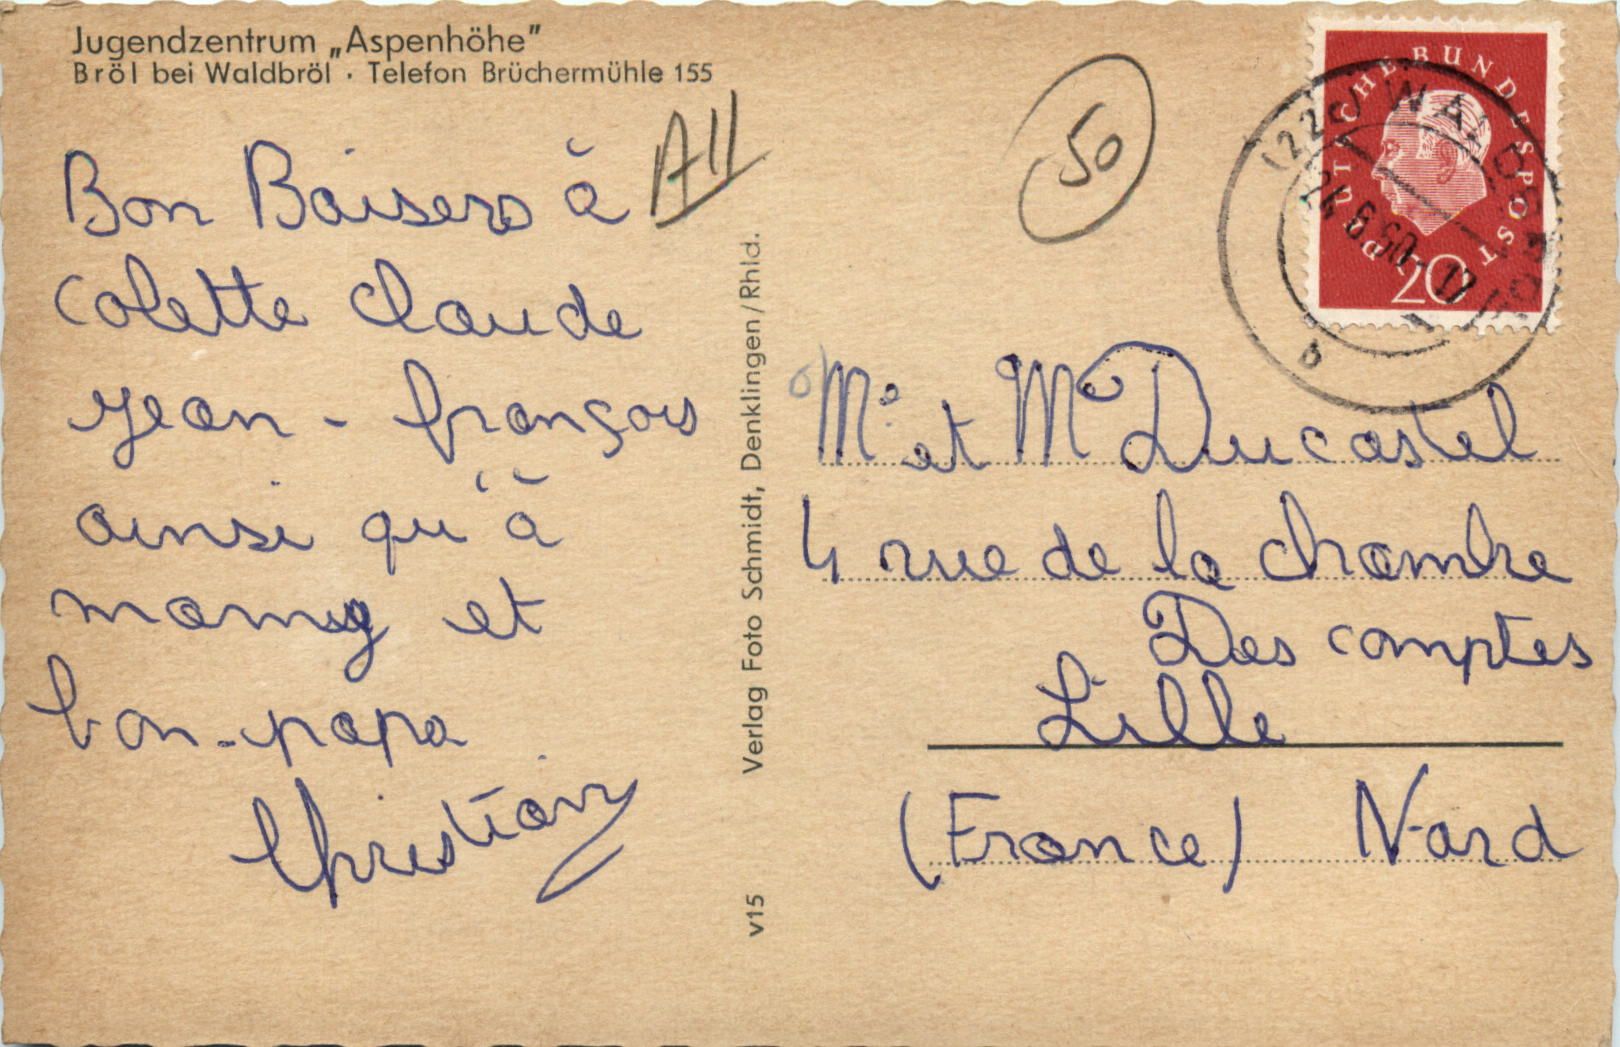 Jugendzentrum „Aspenhöhe"
Bröl bei Waldbröl · Telefon Brüchermühle 155
All
Bon Baisers à
Colette Claude
Jean - françois
ainsi qu'à
mamy et
bon-papa
Christian
Verlag Foto Schmidt, Denklingen/Rhld.
v15
50
DEUTSCHE BUNDESPOST
20
(22c) WALDBRÖL
b
Mr et Me Ducastel
4 rue de la chambre
Des comptes
Lille
(France) Nord